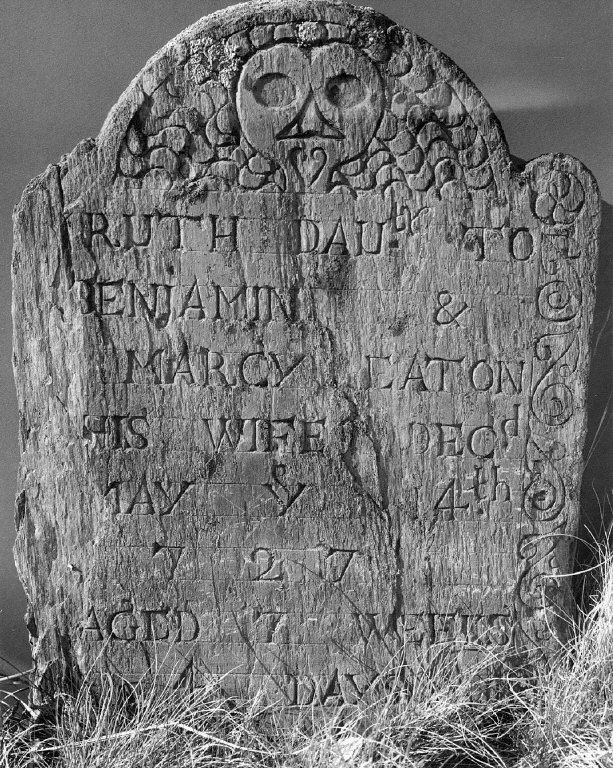 RUTH DAUtr TO
BENJAMIN &
MARCY EATON
HIS WIFE DECd
MAY ye 4th
727
AGED 7 WEEKS
1 DAY